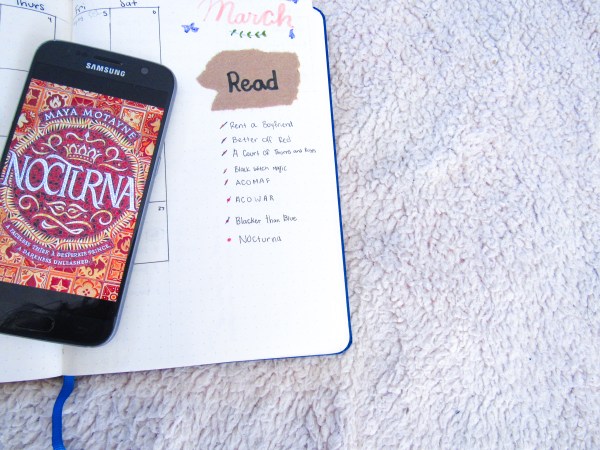 Thurs
Fri
Sat
4
5
6
SAMSUNG
MAYA MOTAYNE
NOCTURNA
A FACELESS THIEF. A DESPERATE PRINCE.
A DARKNESS UNLEASHED.
March
Read
Rent a Boyfriend
Better Off Red
A Court of Thorns and Roses
Black Witch Magic
ACOMAF
ACOWAR
Blacker than Blue
Nocturna
27